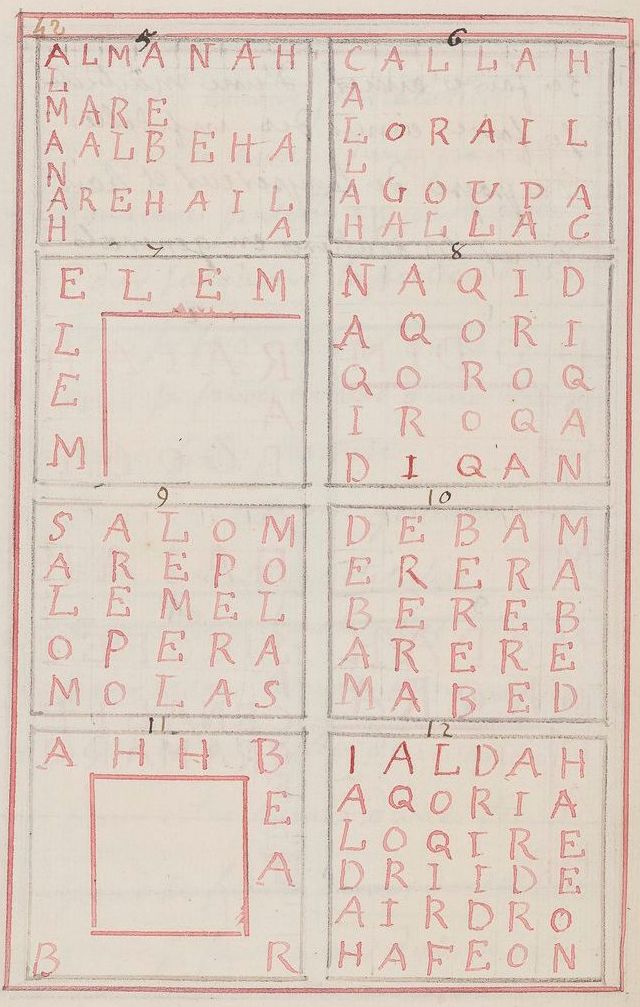 42
5
A L M A N A H
L
M A R E
A A L B E H A
N
A R E H A I L
H A
6
C A L L A H
A
L O R A I L
L
A G O U P A
H A L L A C
7
E L E M
L
E
M
8
N A Q I D
A Q O R I
Q O R O Q
I R O Q A
D I Q A N
9
S A L O M
A R E P O
L E M E L
O P E R A
M O L A S
10
D E B A M
E R E R A
B E R E B
A R E R E
M A B E D
11
A H H B
E
A
B R
12
I A L D A H
A Q O R I A
L O Q I R E
D R I I D E
A I R D R O
H A F E O N